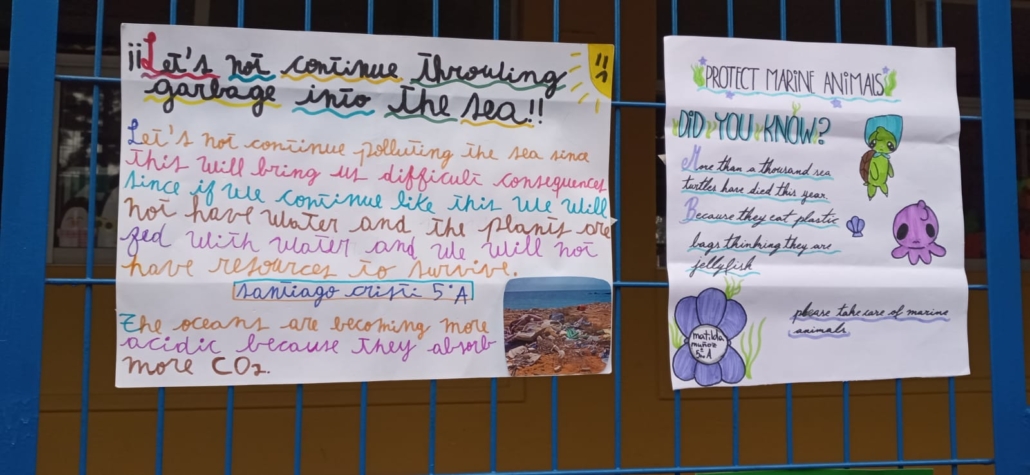 ¡¡Let's not continue throwling
garbage into the sea!!
Let's not continue polluting the sea since
this will bring us difficult consequences
since if we continue like this we will
not have water and the plants are
fed with water and we will not
have resources to survive.
Santiago Cristi 5°A
The oceans are becoming more
acidic because they absorb
more CO2.
PROTECT MARINE ANIMALS
DID YOU KNOW?
More than a thousand sea
turtles have died this year
Because they eat plastic
bags thinking they are
jellyfish
please take care of marine
animals
matilda
muñoz
5°A